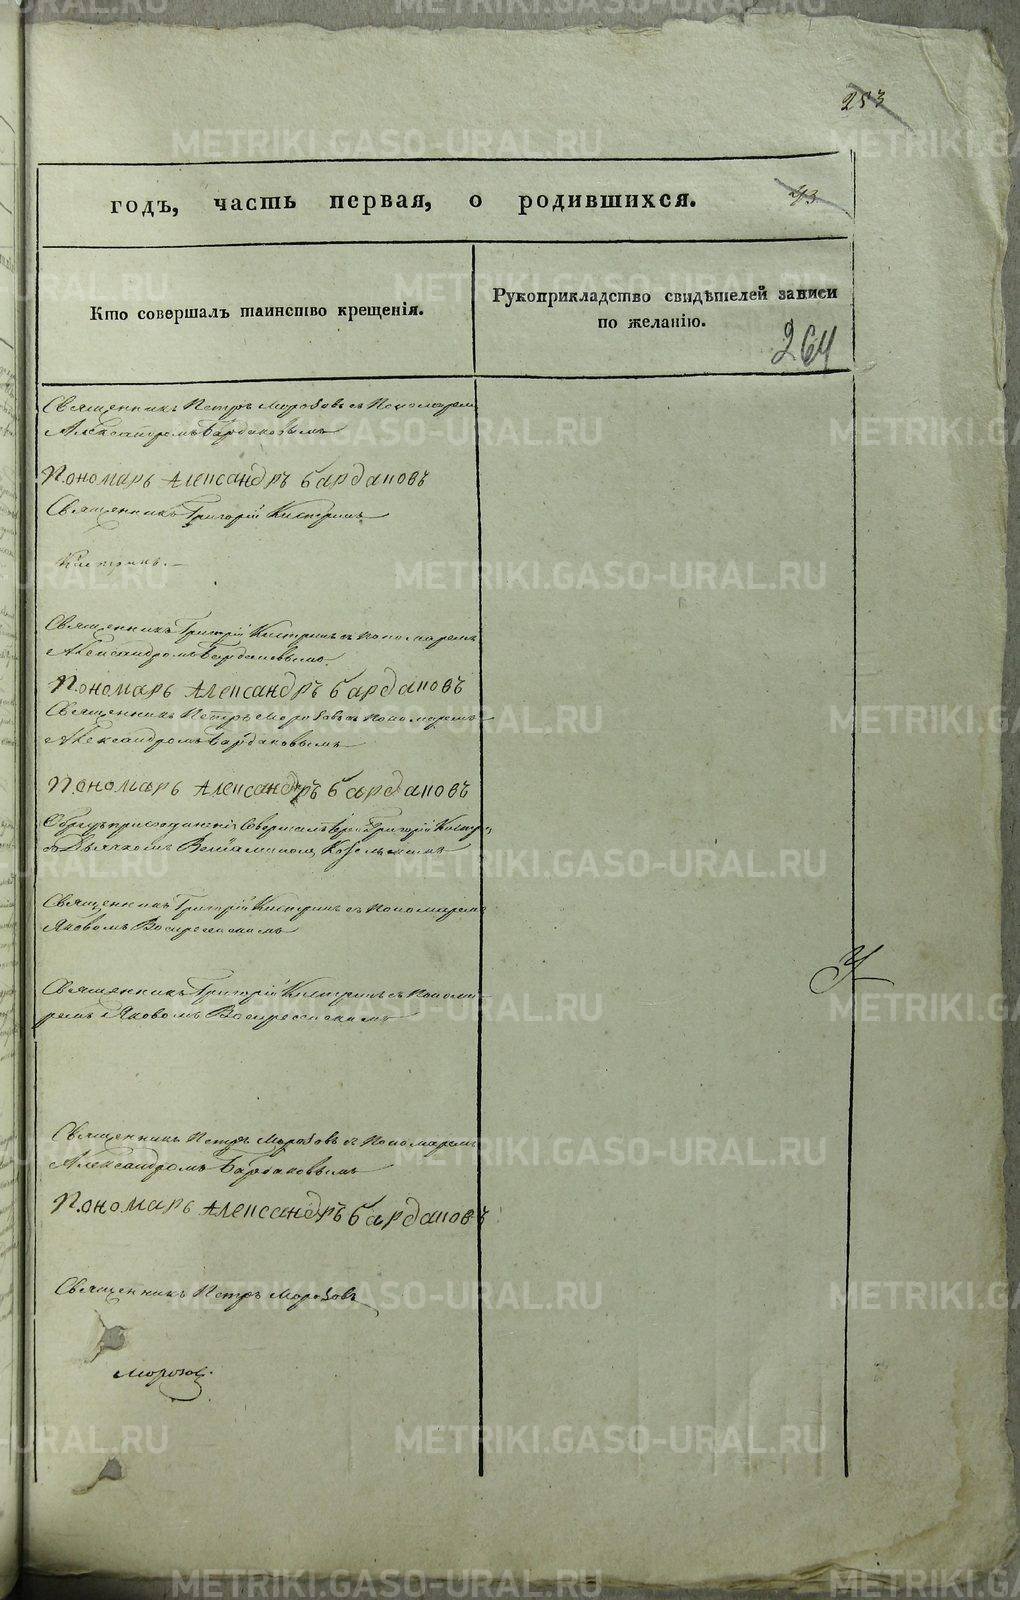 253
годъ, часть первая, о родившихся.
43.
Кто совершалъ таинство крещенія.
Рукоприкладство свидѣтелей записи
по желанію.
264
Священникъ Петръ Морозовъ съ Пономарем
Александромъ Бардаковымъ
Пономарь Александръ Бардаковъ
Священникъ Григорій Кистринъ
Кистринъ.
Священникъ Григорій Кистринъ съ пономаремъ
Александромъ Бардаковымъ
Пономарь Александръ Бардаковъ
Священникъ Петръ Морозовъ съ Пономаремъ
Александромъ Бардаковымъ
Пономарь Александръ Бардаковъ
Совершалъ Іерей Григорій
Дьячкомъ Веніаминомъ
Священникъ Григорій Кистринъ съ Пономаремъ
Яковомъ Воскресенскимъ
Священникъ Григорій Кистринъ съ Понома
ремъ Яковомъ Воскресенскимъ
Священникъ Петръ Морозовъ съ Пономаремъ
Александромъ Бардаковымъ
Пономарь Александръ Бардаковъ
Священникъ Петръ Морозовъ
Морозовъ.
METRIKI.GASO-URAL.RU